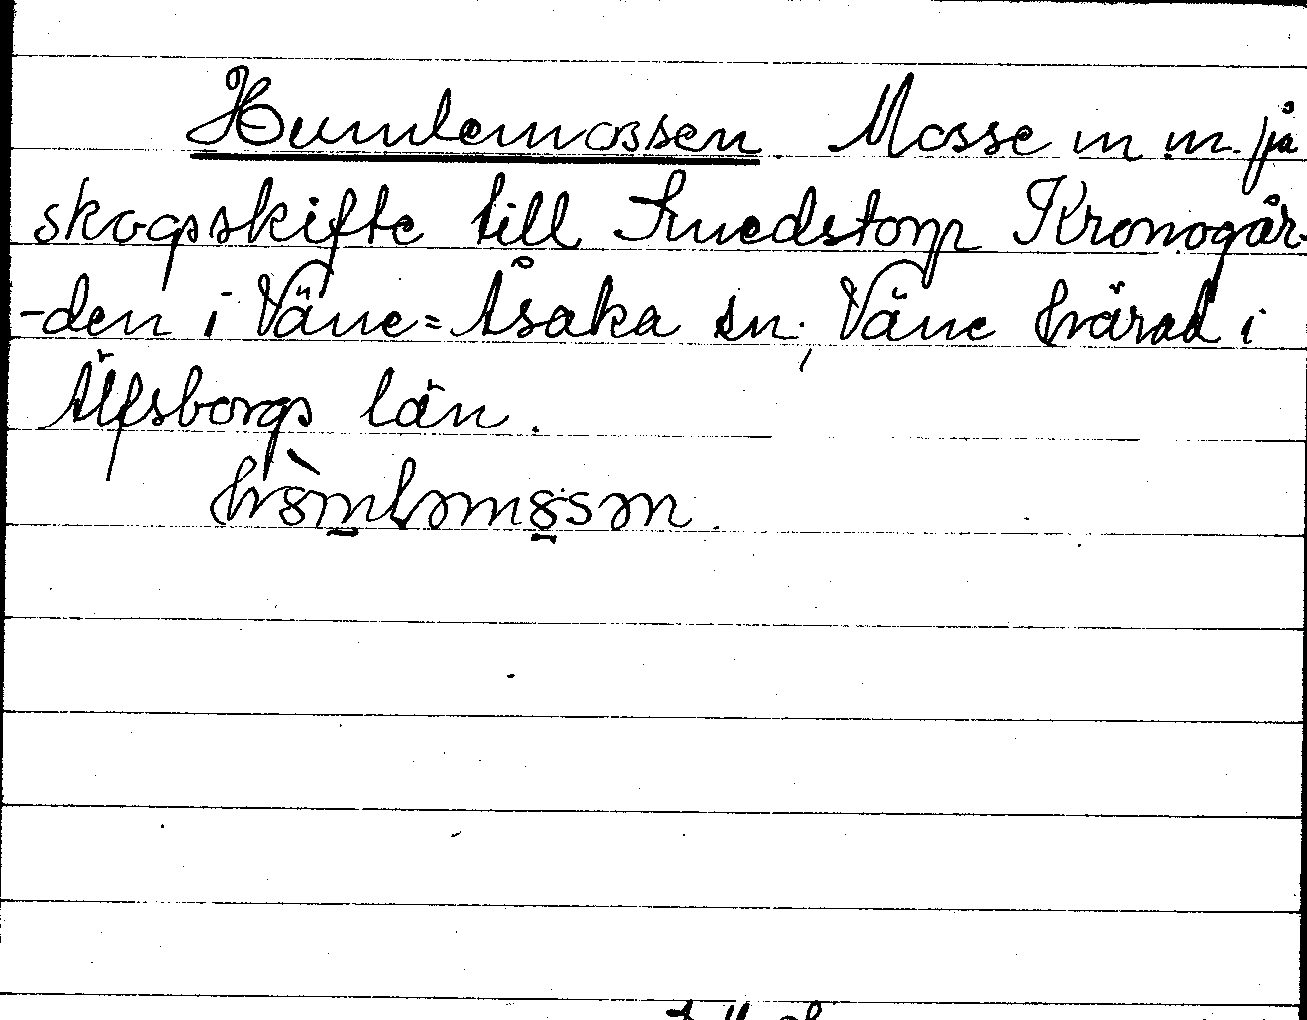 Humlemossen. Mosse m. m. på
skogsskifte till Smedstorp Kronogår-
-den i Väne=Åsaka sn., Väne härad i
Älfsborgs län.